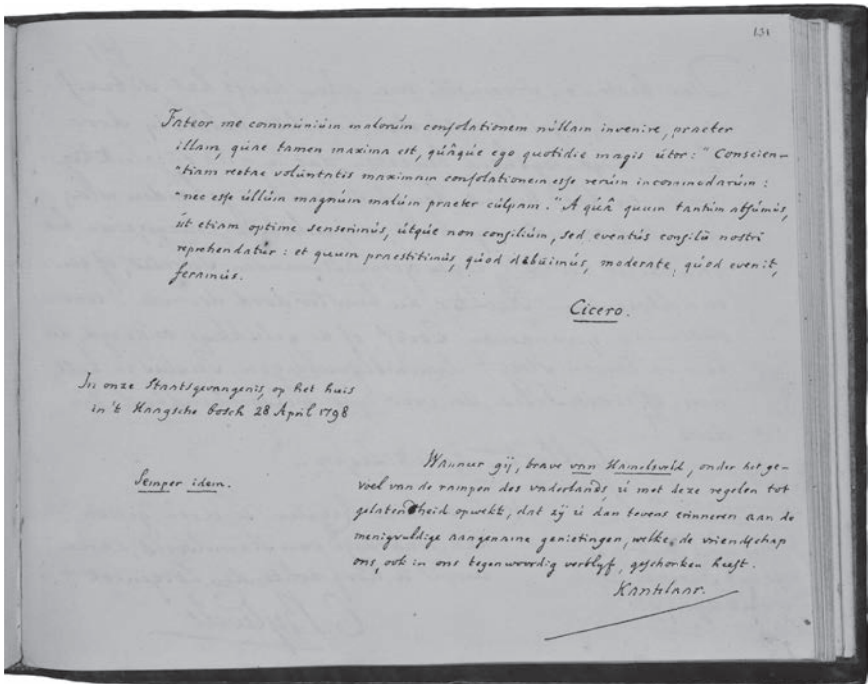 131
Fateor me commúniúm malorúm consolationem núllam invenire, praeter
illam, qúae tamen maxima est, qúâqúe ego quotidie magis útor: "Conscien-
"tiam rectae volúntatis maximam consolationem esse rerúm incommodarúm:
"nec esse úllúm magnúm malúm praeter cúlpam." A qúâ quum tantúm absúmús,
út etiam optime senserimús, útqúe non consiliúm, sed eventús consilii nostri
reprehendatúr: et quum praestitimús, qúod debúimús, moderate, qúod evenit,
feramús.
Cicero.
In onze Staatsgevangenis, op het huis
in 't Haagsche bosch 28 April 1798
Semper idem.
Wanneer gij, brave van Hamelsveld, onder het ge-
voel van de rampen des vaderlands, ú met deze regelen tot
gelatenheid opwekt, dat zij ú dan tevens erinneren aan de
menigvuldige aangename genietingen, welke de vriendschap
ons, ook in ons tegenwoordig verblyf, geschonken heeft.
Kantelaar.